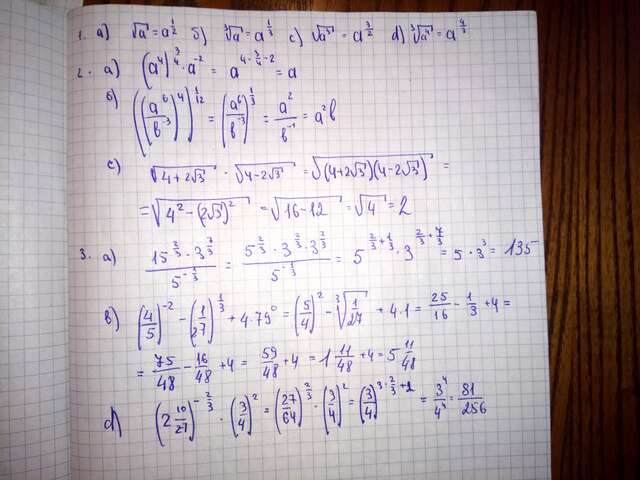 1. a) √a = a^{1/2} б) ∛a = a^{1/3} c) √a³ = a^{3/2} d) ∛a⁴ = a^{4/3}
2. a) (a⁴)^{3/4} · a^{-2} = a^{4·3/4-2} = a
б) ((a⁶/b^{-3})⁴)^{1/12} = (a⁶/b^{-3})^{1/3} = a²/b^{-1} = a²b
c) √(4+2√3) · √(4-2√3) = √((4+2√3)(4-2√3)) =
= √(4²-(2√3)²) = √(16-12) = √4 = 2
3. a) 15^{2/3} · 3^{7/3} / 5^{-1/3} = 5^{2/3} · 3^{2/3} · 3^{7/3} / 5^{-1/3} = 5^{2/3+1/3} · 3^{2/3+7/3} = 5 · 3³ = 135
b) (4/5)^{-2} - (1/27)^{1/3} + 4·79⁰ = (5/4)² - ∛(1/27) + 4·1 = 25/16 - 1/3 + 4 =
= 75/48 - 16/48 + 4 = 59/48 + 4 = 1 11/48 + 4 = 5 11/48
d) (2 10/27)^{-2/3} · (3/4)² = (27/64)^{2/3} · (3/4)² = (3/4)^{3·2/3+2} = 3⁴/4⁴ = 81/256